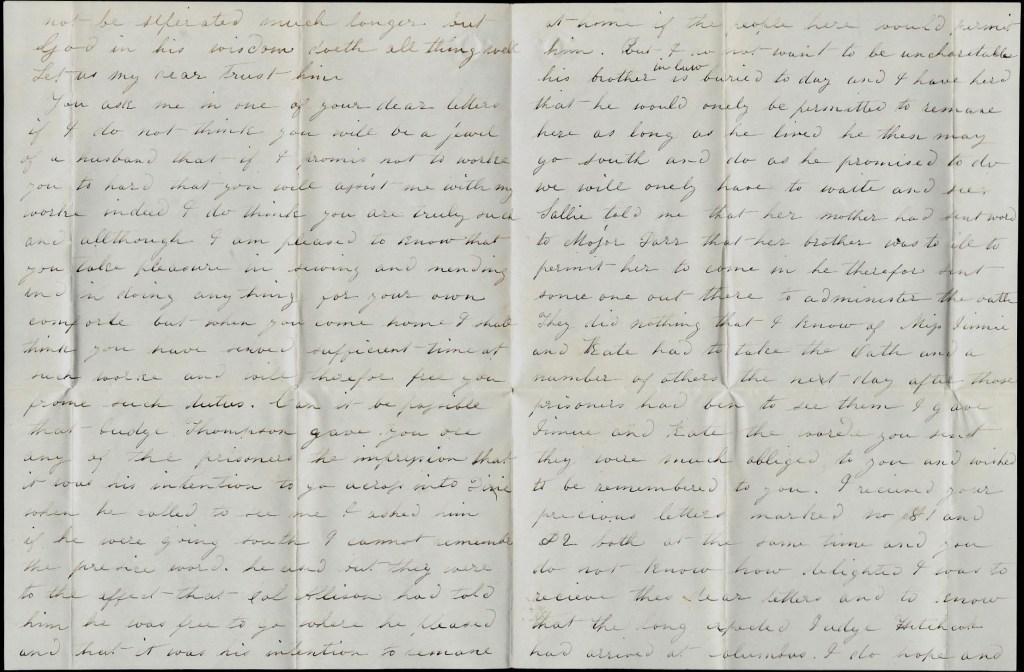 not be seperated much longer but
God in his wisdom doeth all thing well
Let us my dear trust him
You ask me in one of your dear letters
if I do not think you will be a jewel
of a husband that if I promis not to worke
you to hard that you will assist me with my
worke indeed I do think you are truly such
and allthough I am pleased to know that
you take pleasure in sewing and mending
and in doing any thing for your own
comforte but when you come home I shall
think you have served sufficient time at
such worke and will therefor free you
frome such duties. Can it be possible
that Judge Thompson gave you or
any of the prisoners the impression that
it was his intention to go across into
when he called to see me I asked him
if he were going south I cannot remember
the precise word. he said but they were
to the effect that Col Allison had told
him he was free to go where he pleased
and that it was his intention to remane
at home if the people here would permit
him. But I do not want to be uncharitable
his brother in law is buried to day and I have herd
that he would onely be permitted to remane
here as long as he lived he then may
go south and do as he promised to do
we will onely have to waite and see.
Sallie told me that her mother had sent word
to Major Darr that her brother was to ill to
permit her to come in he therefor sent
some one out there to administer the oath
They did nothing that I know of Miss Jinnie
and Kate had to take the Oath and a
number of others the next day after those
prisoners had ben to see them I gave
Jinnie and Kate the worde you sent
they were much obliged to you and wished
to be remembered to you. I recieved your
precious letters marked no 81 and
82 both at the same time and you
do not know how delighted I was to
recieve thes dear letters and to know
that the long expected Judge Hitchcok
had arrived at columbus. I do hope and